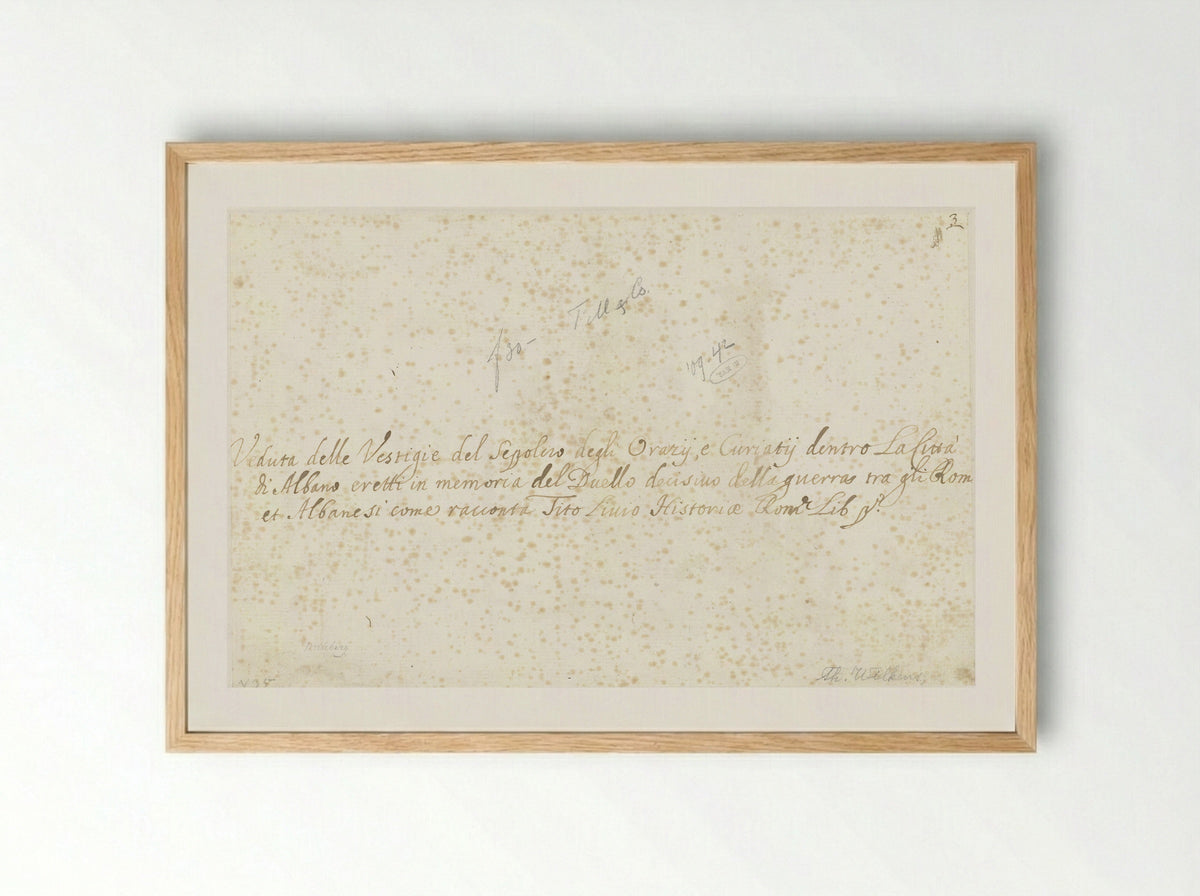 3
Till & Co.
f 30-
Veduta delle Vestigie del Sepolcro degli Orazij, e Curiatij dentro La Città
di Albano eretti in memoria del Duello decisivo della guerras tra gli Rom
et Albanesi come racconta Tito Livio Historiæ Rom: Lib p.º
Th. Wilkens,